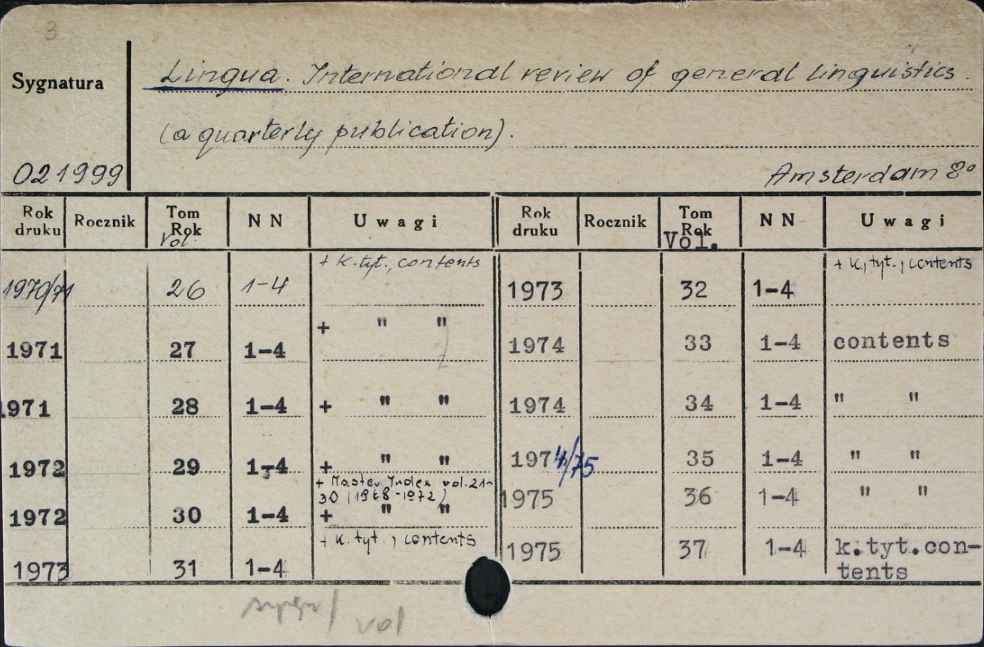 3
Sygnatura
Lingua. International review of general linguistics.
(a quarterly publication).
021999
Amsterdam 8°
Rok druku Rocznik Tom Rok Vol. N N Uwagi
1970/71 26 1-4 + k.tyt., contents
1971 27 1-4 + " "
1971 28 1-4 + " "
1972 29 1-4 + " "
+ Master Index vol. 21-
30 (1968-1972)
1972 30 1-4 + " "
1973 31 1-4 + k.tyt., contents
Rok druku Rocznik Tom Rok Vol. N N Uwagi
1973 32 1-4 + k,tyt., contents
1974 33 1-4 contents
1974 34 1-4 " "
1974/75 35 1-4 " "
1975 36 1-4 " "
1975 37 1-4 k.tyt.con-
tents
vol